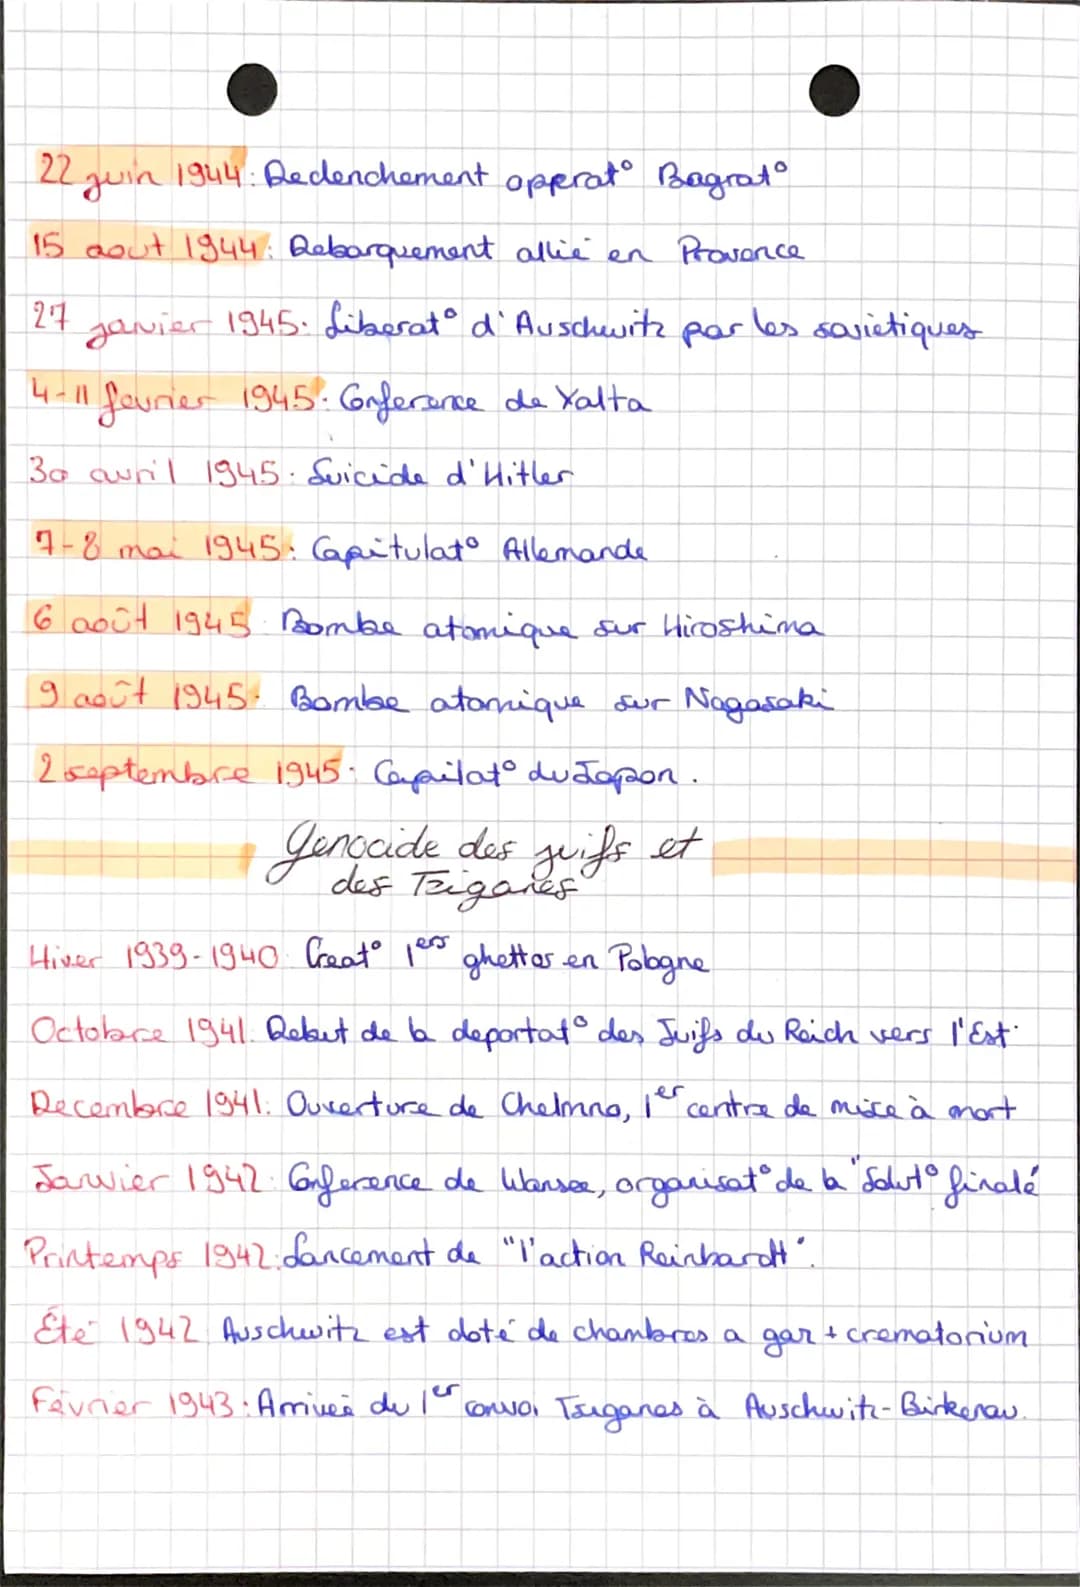 22 juin 1944: Declenchement opperat° Bagrat°
15 aout 1944: Debarquement allié en Provence
27 janvier 1945: Liberat° d'Auschwitz par les sovietiques
4-11 fevrier 1945: Conference de Yalta
30 avril 1945: Suicide d'Hitler
7-8 mai 1945: Capitulat° Allemande
6 août 1945: Bombe atomique sur Hiroshima
9 août 1945: Bombe atomique sur Nagasaki
2 septembre 1945: Capilat° du Japon.
Genocide des juifs et
des Tziganes
Hiver 1939-1940: Creat° 1ers ghettos en Pologne
Octobre 1941: Debut de la deportat° des Juifs du Reich vers l'Est.
Decembre 1941: Ouverture de Chelmno, 1er centre de mise à mort
Janvier 1942: Conference de Wansee, organisat° de la "Solut° finale"
Printemps 1942: Lancement de "l'action Reinhardt".
Éte 1942 Auschwitz est doté de chambres a gaz + crematorium
Février 1943: Arriveé du 1er convoi Tsiganes à Auschwitz-Birkenau.